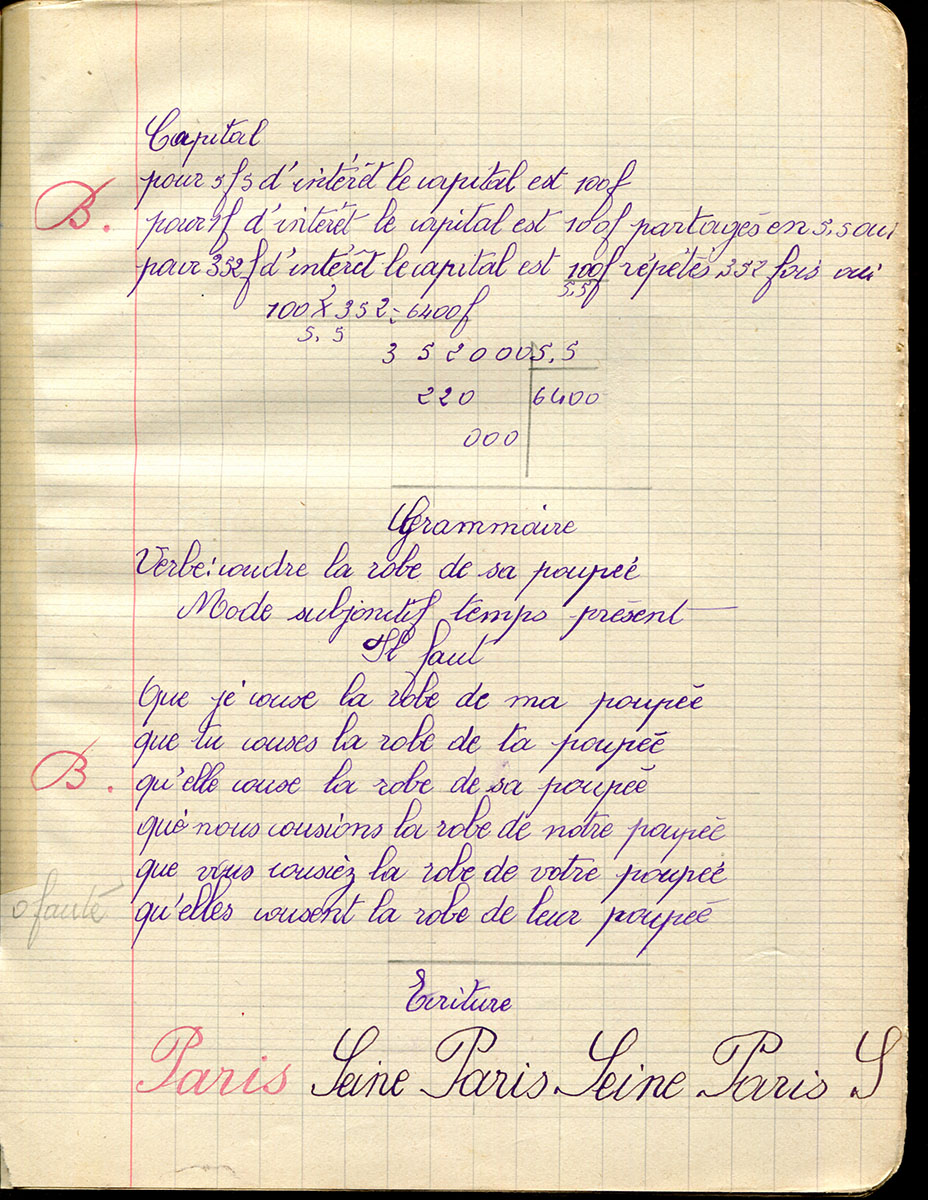 Capital
pour 5f5 d'intérêt le capital est 100f
B.
pour 1f d'intérêt le capital est 100f partagés en 5,5 oui
pour 352f d'intérêt le capital est 100f répétés 352 fois oui
5,5
100 X 352 = 6400f
5,5
352000 5,5
220 6400
000
Grammaire
Verbe: coudre la robe de sa poupée
Mode subjonctif temps présent
Il faut
Que je couse la robe de ma poupée
que tu couses la robe de ta poupée
B.
qu'elle couse la robe de sa poupée
que nous cousions la robe de notre poupée
que vous cousiez la robe de votre poupée
0 faute
qu'elles cousent la robe de leur poupée
Ecriture
Paris Seine Paris Seine Paris S